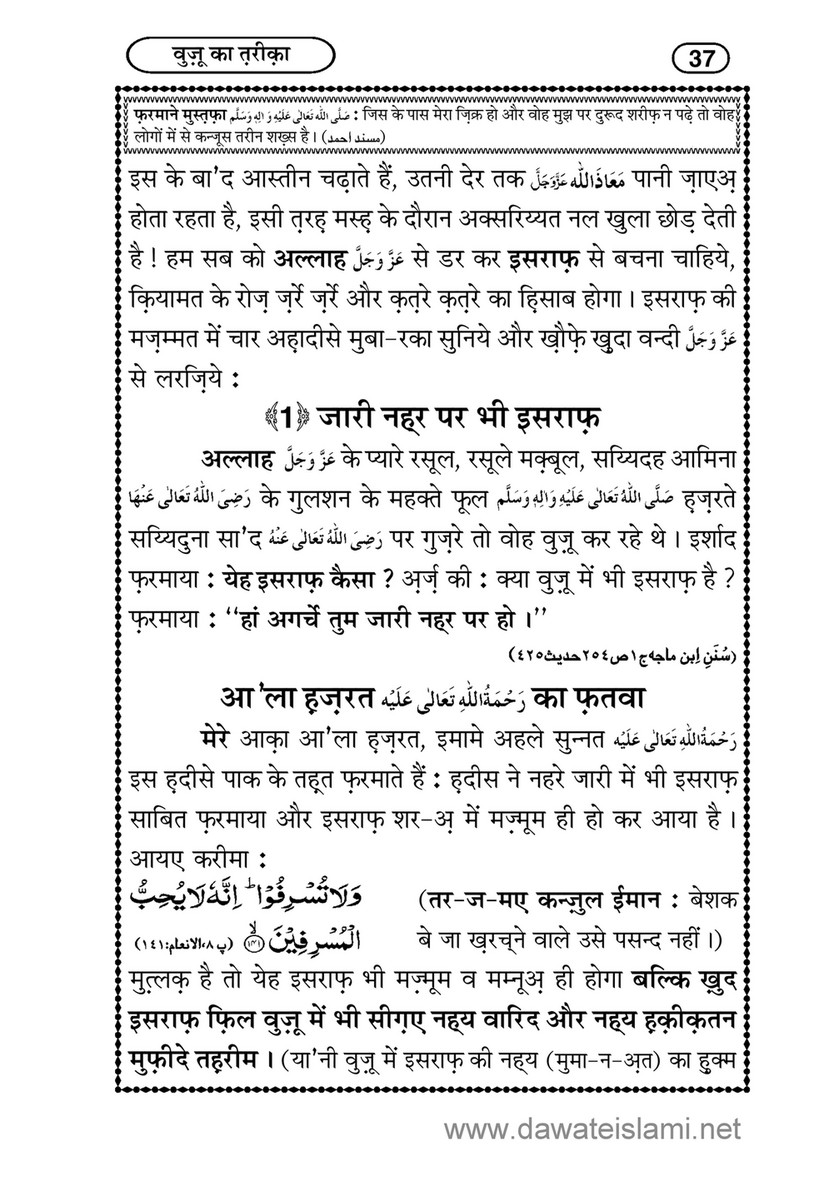 वुज़ू का त़रीक़ा
37
फ़रमाने मुस्त़फ़ा صَلَّى اللهُ تَعَالٰى عَلَيْهِ وَاٰلِهٖ وَسَلَّم : जिस के पास मेरा ज़िक्र हो और वोह मुझ पर दुरूद शरीफ़ न पढ़े तो वोह
लोगों में से कन्जूस तरीन शख़्स है । (مسند احمد)
इस के बा'द आस्तीन चढ़ाते हैं, उतनी देर तक مَعَاذَ اللّٰه عَزَّوَجَلَّ पानी ज़ाएअ़
होता रहता है, इसी त़रह़ मस्ह़ के दौरान अक्सरिय्यत नल खुला छोड़ देती
है ! हम सब को अल्लाह عَزَّ وَجَلَّ से डर कर इसराफ़ से बचना चाहिये,
क़ियामत के रोज़ ज़र्रे ज़र्रे और क़त़रे क़त़रे का ह़िसाब होगा । इसराफ़ की
मज़म्मत में चार अह़ादीसे मुबा-रका सुनिये और ख़ौफ़े ख़ुदा वन्दी عَزَّ وَجَلَّ
से लरज़िये :
﴾1﴿ जारी नह्र पर भी इसराफ़
अल्लाह عَزَّ وَجَلَّ के प्यारे रसूल, रसूले मक़्बूल, सय्यिदह आमिना
رَضِیَ اللّٰهُ تَعَالٰی عَنْهَا के गुलशन के महक्ते फूल صَلَّی اللّٰهُ تَعَالٰی عَلَیْهِ وَاٰلِهٖ وَسَلَّم ह़ज़रते
सय्यिदुना सा'द رَضِیَ اللّٰهُ تَعَالٰی عَنْهُ पर गुज़रे तो वोह वुज़ू कर रहे थे । इर्शाद
फ़रमाया : येह इसराफ़ कैसा ? अ़र्ज़ की : क्या वुज़ू में भी इसराफ़ है ?
फ़रमाया : ‘‘हां अगर्चे तुम जारी नह्र पर हो ।’’
(سُنَنِ اِبن ماجه ج١ ص٢٥٤ حدیث ٤٢٥)
आ'ला ह़ज़रत رَحْمَةُ اللّٰهِ تَعَالٰی عَلَیْه का फ़तवा
मेरे आक़ा आ'ला ह़ज़रत, इमामे अहले सुन्नत رَحْمَةُ اللّٰهِ تَعَالٰی عَلَیْه
इस ह़दीसे पाक के तह़्त फ़रमाते हैं : ह़दीस ने नहरे जारी में भी इसराफ़
साबित फ़रमाया और इसराफ़ शर-अ़ में मज़्मूम ही हो कर आया है ।
आयए करीमा :
وَلَا تُسْرِفُوْا ؕ اِنَّهٗ لَا یُحِبُّ (तर-ज-मए कन्ज़ुल ईमान : बेशक
الْمُسْرِفِیْنَ ﴿۱۴۱﴾ (پ ٨، الانعام: ١٤١) बे जा ख़रच्ने वाले उसे पसन्द नहीं ।)
मुत़्लक़ है तो येह इसराफ़ भी मज़्मूम व मम्नूअ़ ही होगा बल्कि ख़ुद
इसराफ़ फ़िल वुज़ू में भी सीग़ए नह्य वारिद और नह्य ह़क़ीक़तन
मुफ़ीदे तह़रीम । (या'नी वुज़ू में इसराफ़ की नह्य (मुमा-न-अ़त) का हुक्म
www.dawateislami.net